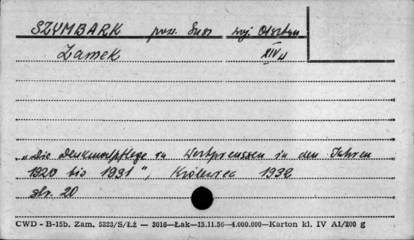 SZYMBARK pow. Susz woj. Olsztyn
Zamek XIV w
"Die Denkmalpflege in Westpreussen in den Jahren
1920 bis 1931", Królewiec 1932
str. 20
CWD - B-15b, Zam. 5223/S/Łż — 3016—Łak—15.11.56—4.000.000—Karton kl. IV A1/200 g